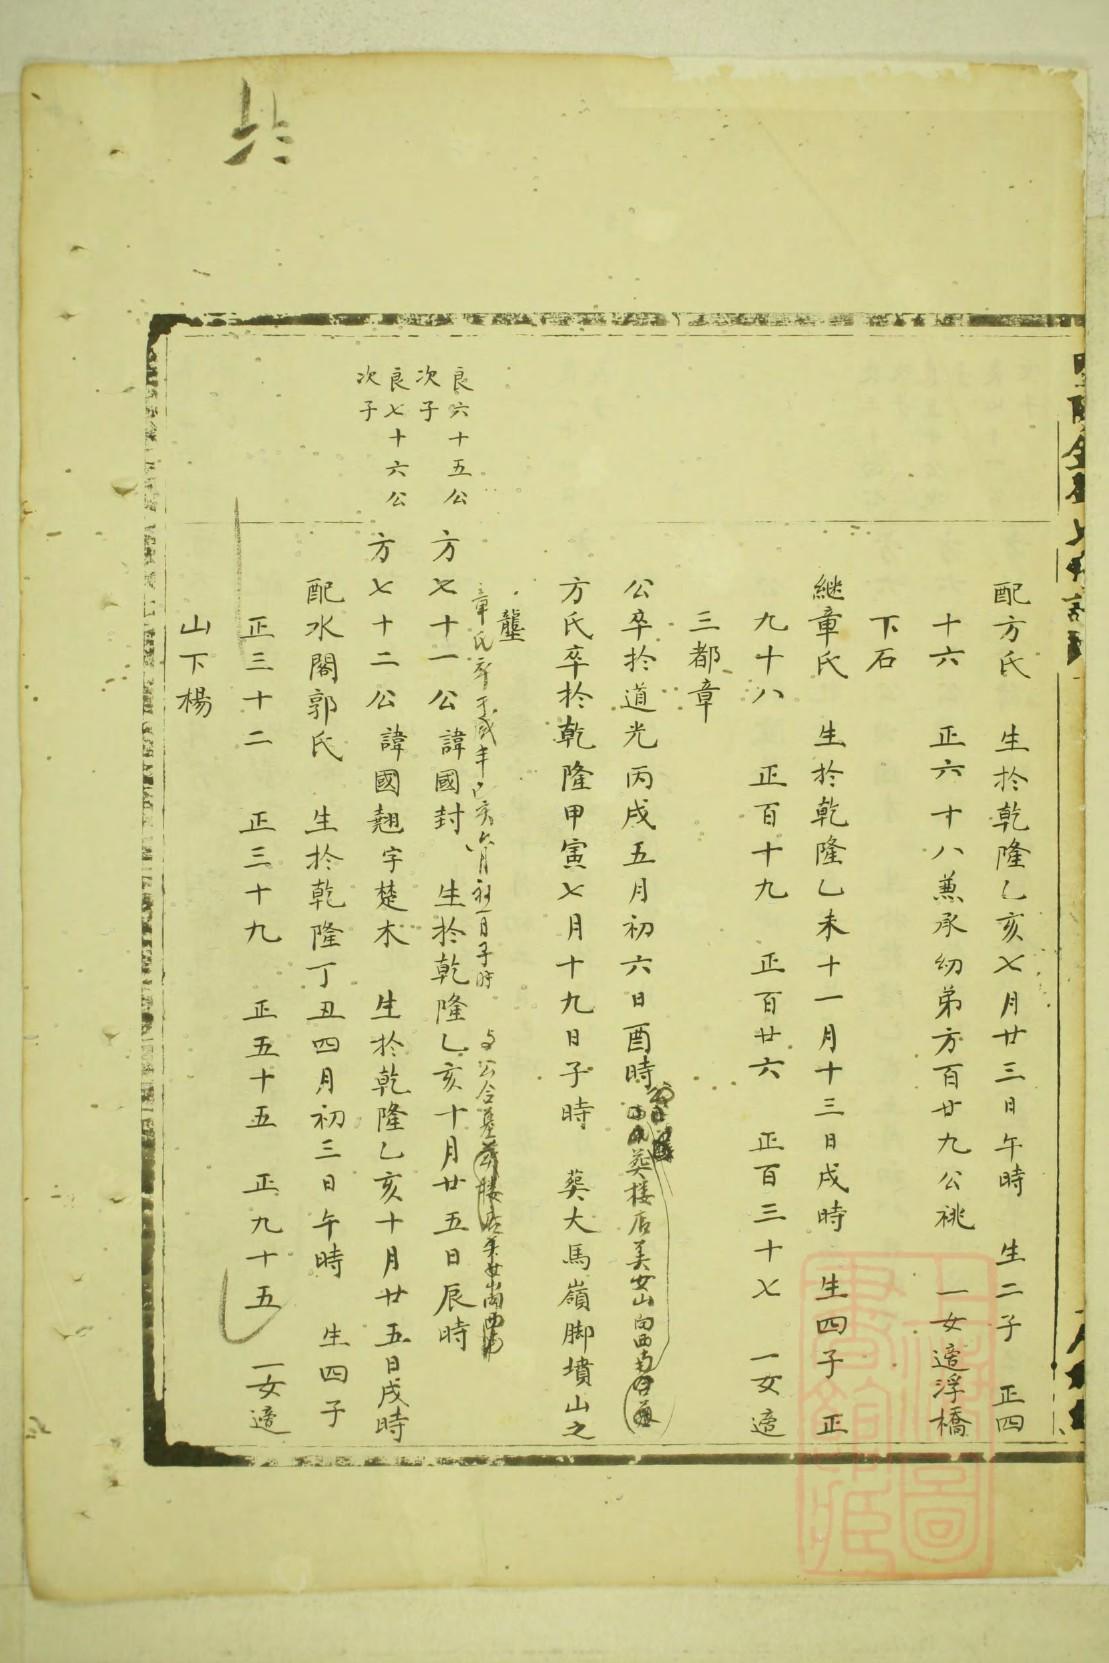 配方氏 生於乾隆乙亥七月廿三日午時 生二子 正四
十六 正六十八兼承幼弟方百廿九公祧 一女適浮橋
下石
繼章氏 生於乾隆乙未十一月十三日戌時 生四子 正
九十八 正百十九 正百廿六 正百三十七 一女適
三都章
公卒於道光丙戌五月初六日酉時 葬樓店美女山向西南
方氏卒於乾隆甲寅七月十九日子時 葬大馬嶺脚墳山之
壟
章氏卒于咸丰己亥六月初一日子時 与公合墓 樓店美女山向西南
良六十五公
次子
方七十一公諱國封 生於乾隆乙亥十月廿五日辰時
良七十六公
次子
方七十二公諱國翹字楚木 生於乾隆乙亥十月廿五日戌時
配水閣郭氏 生於乾隆丁丑四月初三日午時 生四子
正三十二 正三十九 正五十五 正九十五 一女適
山下楊
上海圖
書館藏